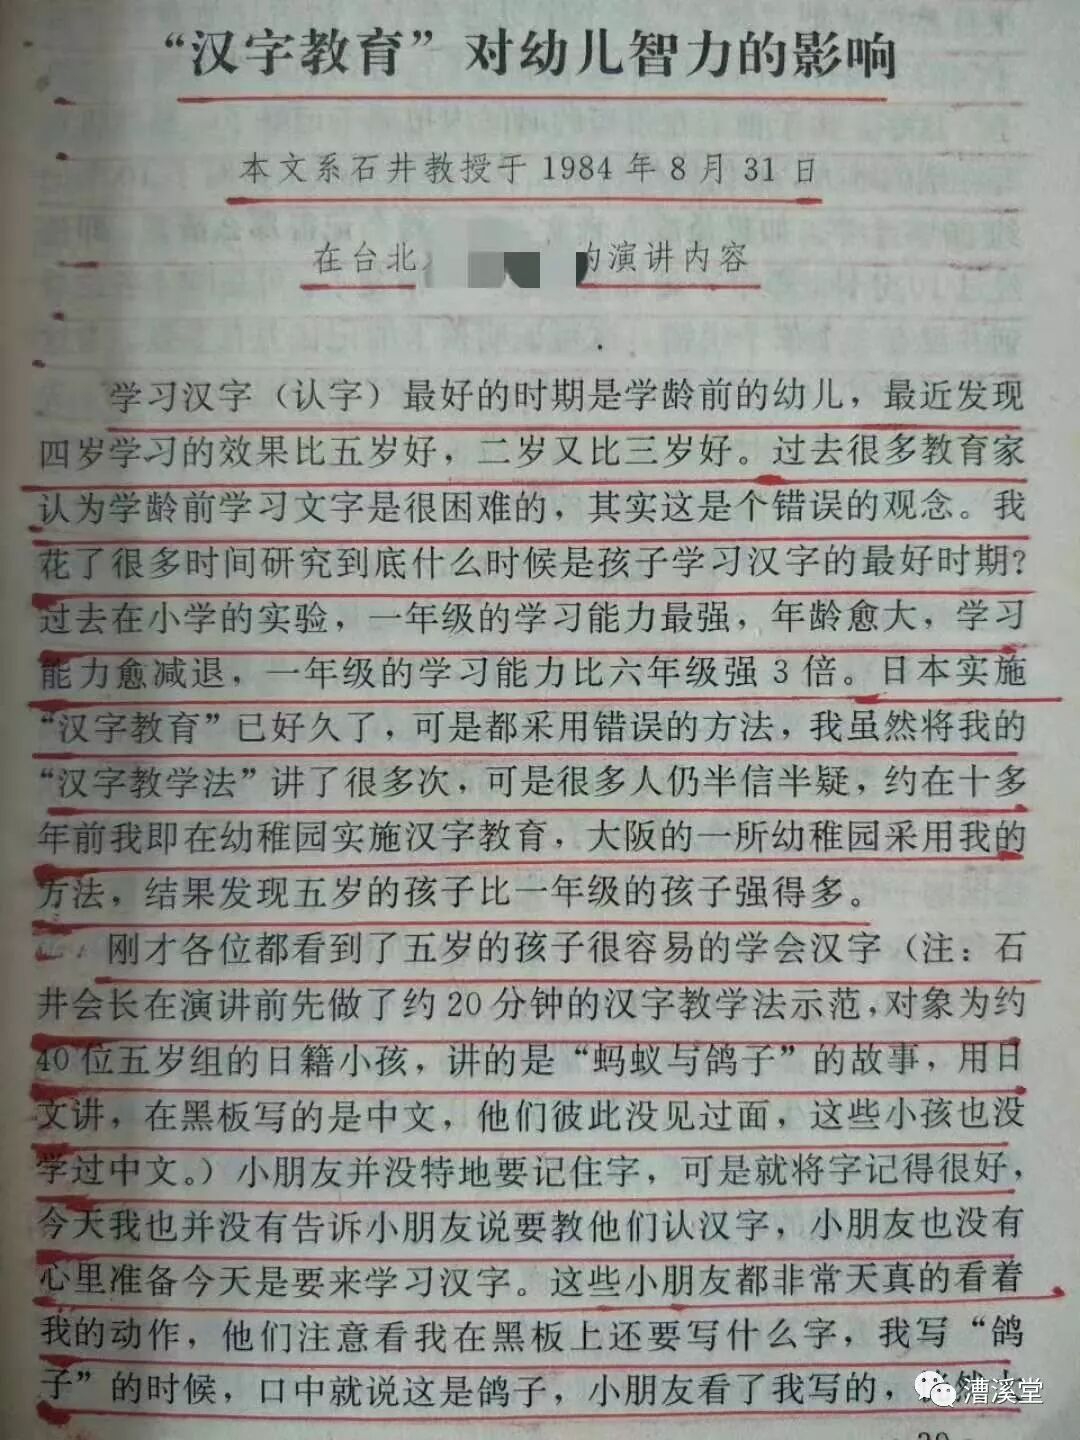 “汉字教育”对幼儿智力的影响
本文系石井教授于 1984 年 8 月 31 日
在台北 的演讲内容
学习汉字（认字）最好的时期是学龄前的幼儿，最近发现
四岁学习的效果比五岁好，二岁又比三岁好。过去很多教育家
认为学龄前学习文字是很困难的，其实这是个错误的观念。我
花了很多时间研究到底什么时候是孩子学习汉字的最好时期？
过去在小学的实验，一年级的学习能力最强，年龄愈大，学习
能力愈减退，一年级的学习能力比六年级强 3 倍。日本实施
“汉字教育”已好久了，可是都采用错误的方法，我虽然将我的
“汉字教学法”讲了很多次，可是很多人仍半信半疑，约在十多
年前我即在幼稚园实施汉字教育，大阪的一所幼稚园采用我的
方法，结果发现五岁的孩子比一年级的孩子强得多。
刚才各位都看到了五岁的孩子很容易的学会汉字（注：石
井会长在演讲前先做了约 20 分钟的汉字教学法示范，对象为约
40 位五岁组的日籍小孩，讲的是“蚂蚁与鸽子”的故事，用日
文讲，在黑板写的是中文，他们彼此没见过面，这些小孩也没
学过中文。）小朋友并没特地要记住字，可是就将字记得很好，
今天我也并没有告诉小朋友说要教他们认汉字，小朋友也没有
心里准备今天是要来学习汉字。这些小朋友都非常天真的看着
我的动作，他们注意看我在黑板上还要写什么字，我写“鸽
子”的时候，口中就说这是鸽子，小朋友看了我写的，
漕溪堂